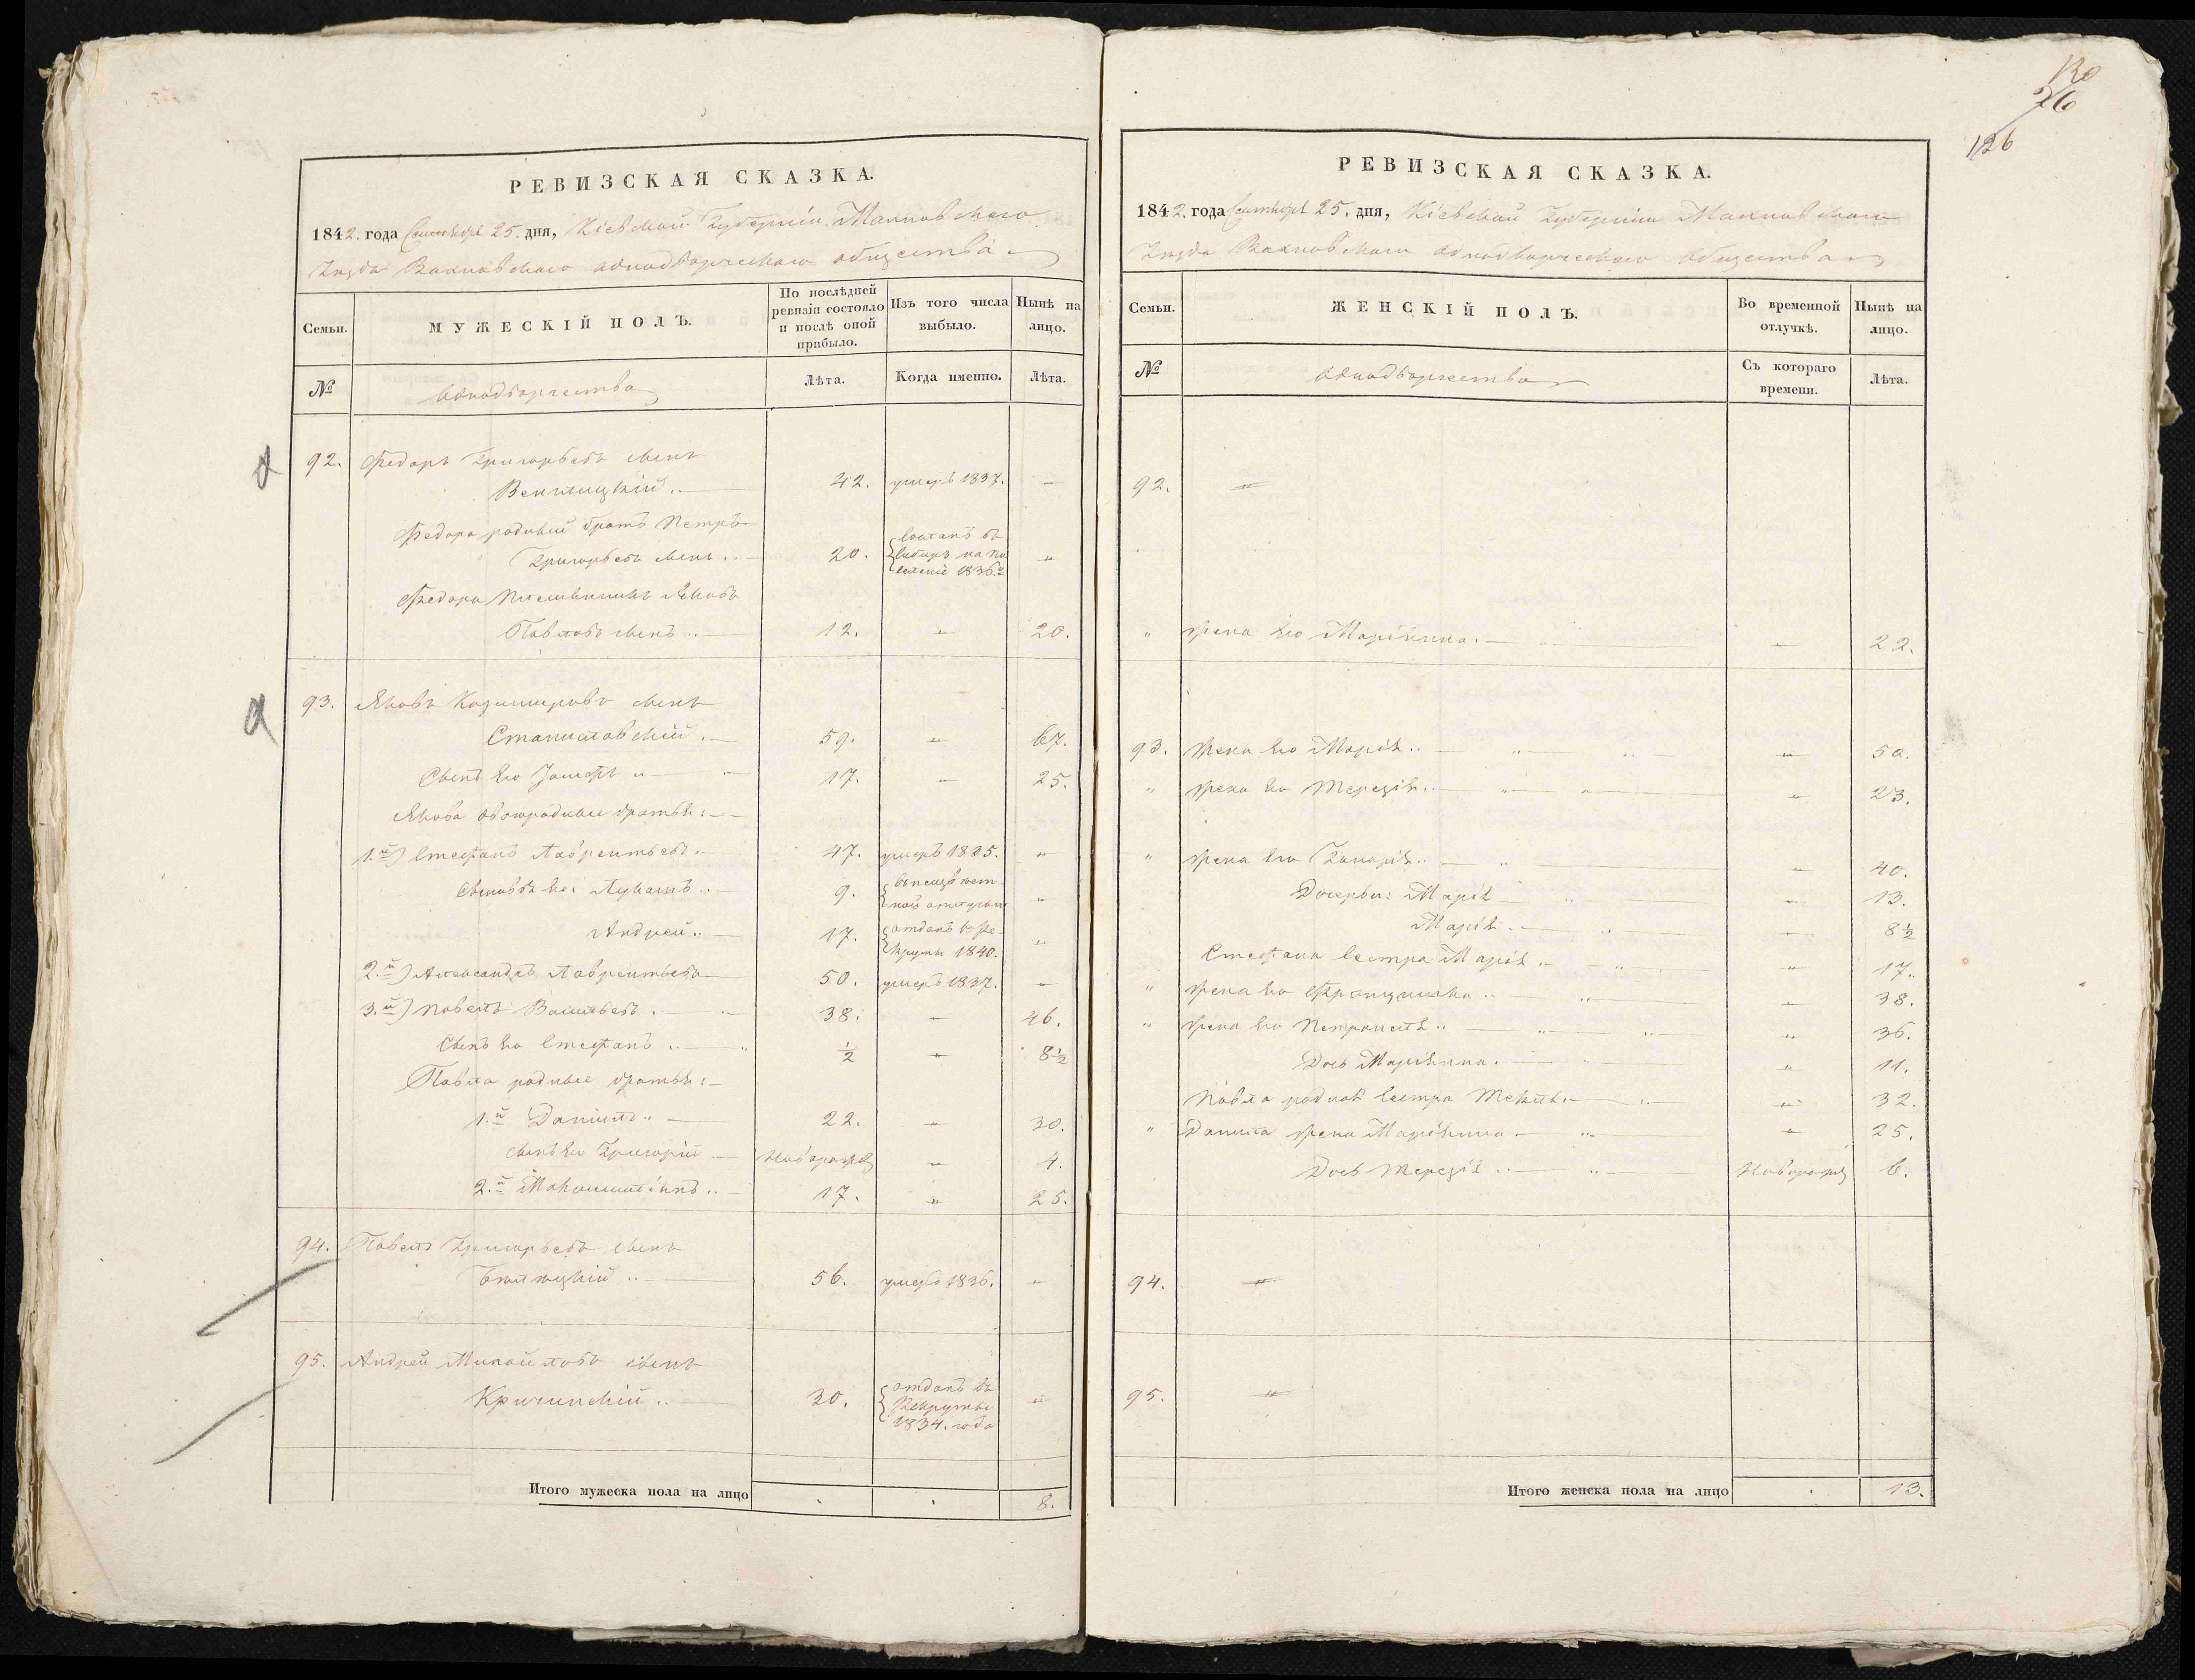 130
26
126
РЕВИЗСКАЯ СКАЗКА.
1842. года Сентября 25. дня, Кіевской Губерніи Махновскаго
Уезда Вахновскаго однодворческаго общества
Семьи.
МУЖЕСКІЙ ПОЛЪ.
По послѣдней ревизіи состояло и послѣ оной прибыло.
Изъ того числа выбыло.
Нынѣ на лицо.
№
однодворчества
Лѣта.
Когда именно.
Лѣта.
92. Федоръ Григорьевъ сынъ
42. умеръ 1837. —
Федора родный братъ Петръ
Григорьевъ сынъ .. 20. сосланъ въ Сибирь на поселеніе 1836.го "
Федора племянникъ Яковъ
Павловъ сынъ .. 12. " 20.
93. Яковъ Казимировъ сынъ
Станиславскій . 59. " 67.
Сынъ его Іосифъ .. 17. " 25.
Якова двоюродные братья:
1.й) Стефанъ Лаврентьевъ. 47. умеръ 1835. "
Сыновья его: Лукашъ .. 9. "
Андрей .. 17. отданъ въ рекруты 1840. "
2.й) Александръ Лаврентьевъ 50. умеръ 1837. "
3.й) Павелъ Васильевъ . 38. " 46.
Сынъ его Стефанъ .. ½ " 8½
Павла родные братья:
1.й Данiилъ .. 22. " 30.
сынъ его Григорій новорожд " 4.
2.й Максимиліянъ .. 17. " 25.
94. Павелъ Григорьевъ сынъ
Бѣлицкій .. 56. умеръ 1836. "
95. Андрей Михайловъ сынъ
Кричинскій .. 30. отданъ въ Рекруты 1834. года "
Итого мужеска пола на лицо . . 8.
РЕВИЗСКАЯ СКАЗКА.
1842. года Сентября 25. дня, Кіевской Губерніи Махновскаго
Уезда Вахновскаго однодворческаго общества
Семьи.
ЖЕНСКІЙ ПОЛЪ.
Во временной отлучкѣ.
Нынѣ на лицо.
№
однодворчества
Съ котораго времени.
Лѣта.
92. "
" жена его Маріянна. " 22.
93. Жена его Марія .. " 50.
" жена его Терезія .. " 23.
" жена его Захарія .. " 40.
Дочерьи: Марія " 13.
Марія . " 8½
Стефана сестра Марія .. " 17.
" жена его Францишка .. " 38.
" жена его Петронеля .. " 36.
Дочь Маріянна. " 11.
Павла родная сестра Текля. " 32.
" Данила жена Маріянна " 25.
Дочь Терезія .. новорожд 6.
94. "
95. "
Итого женска пола на лицо . 13.